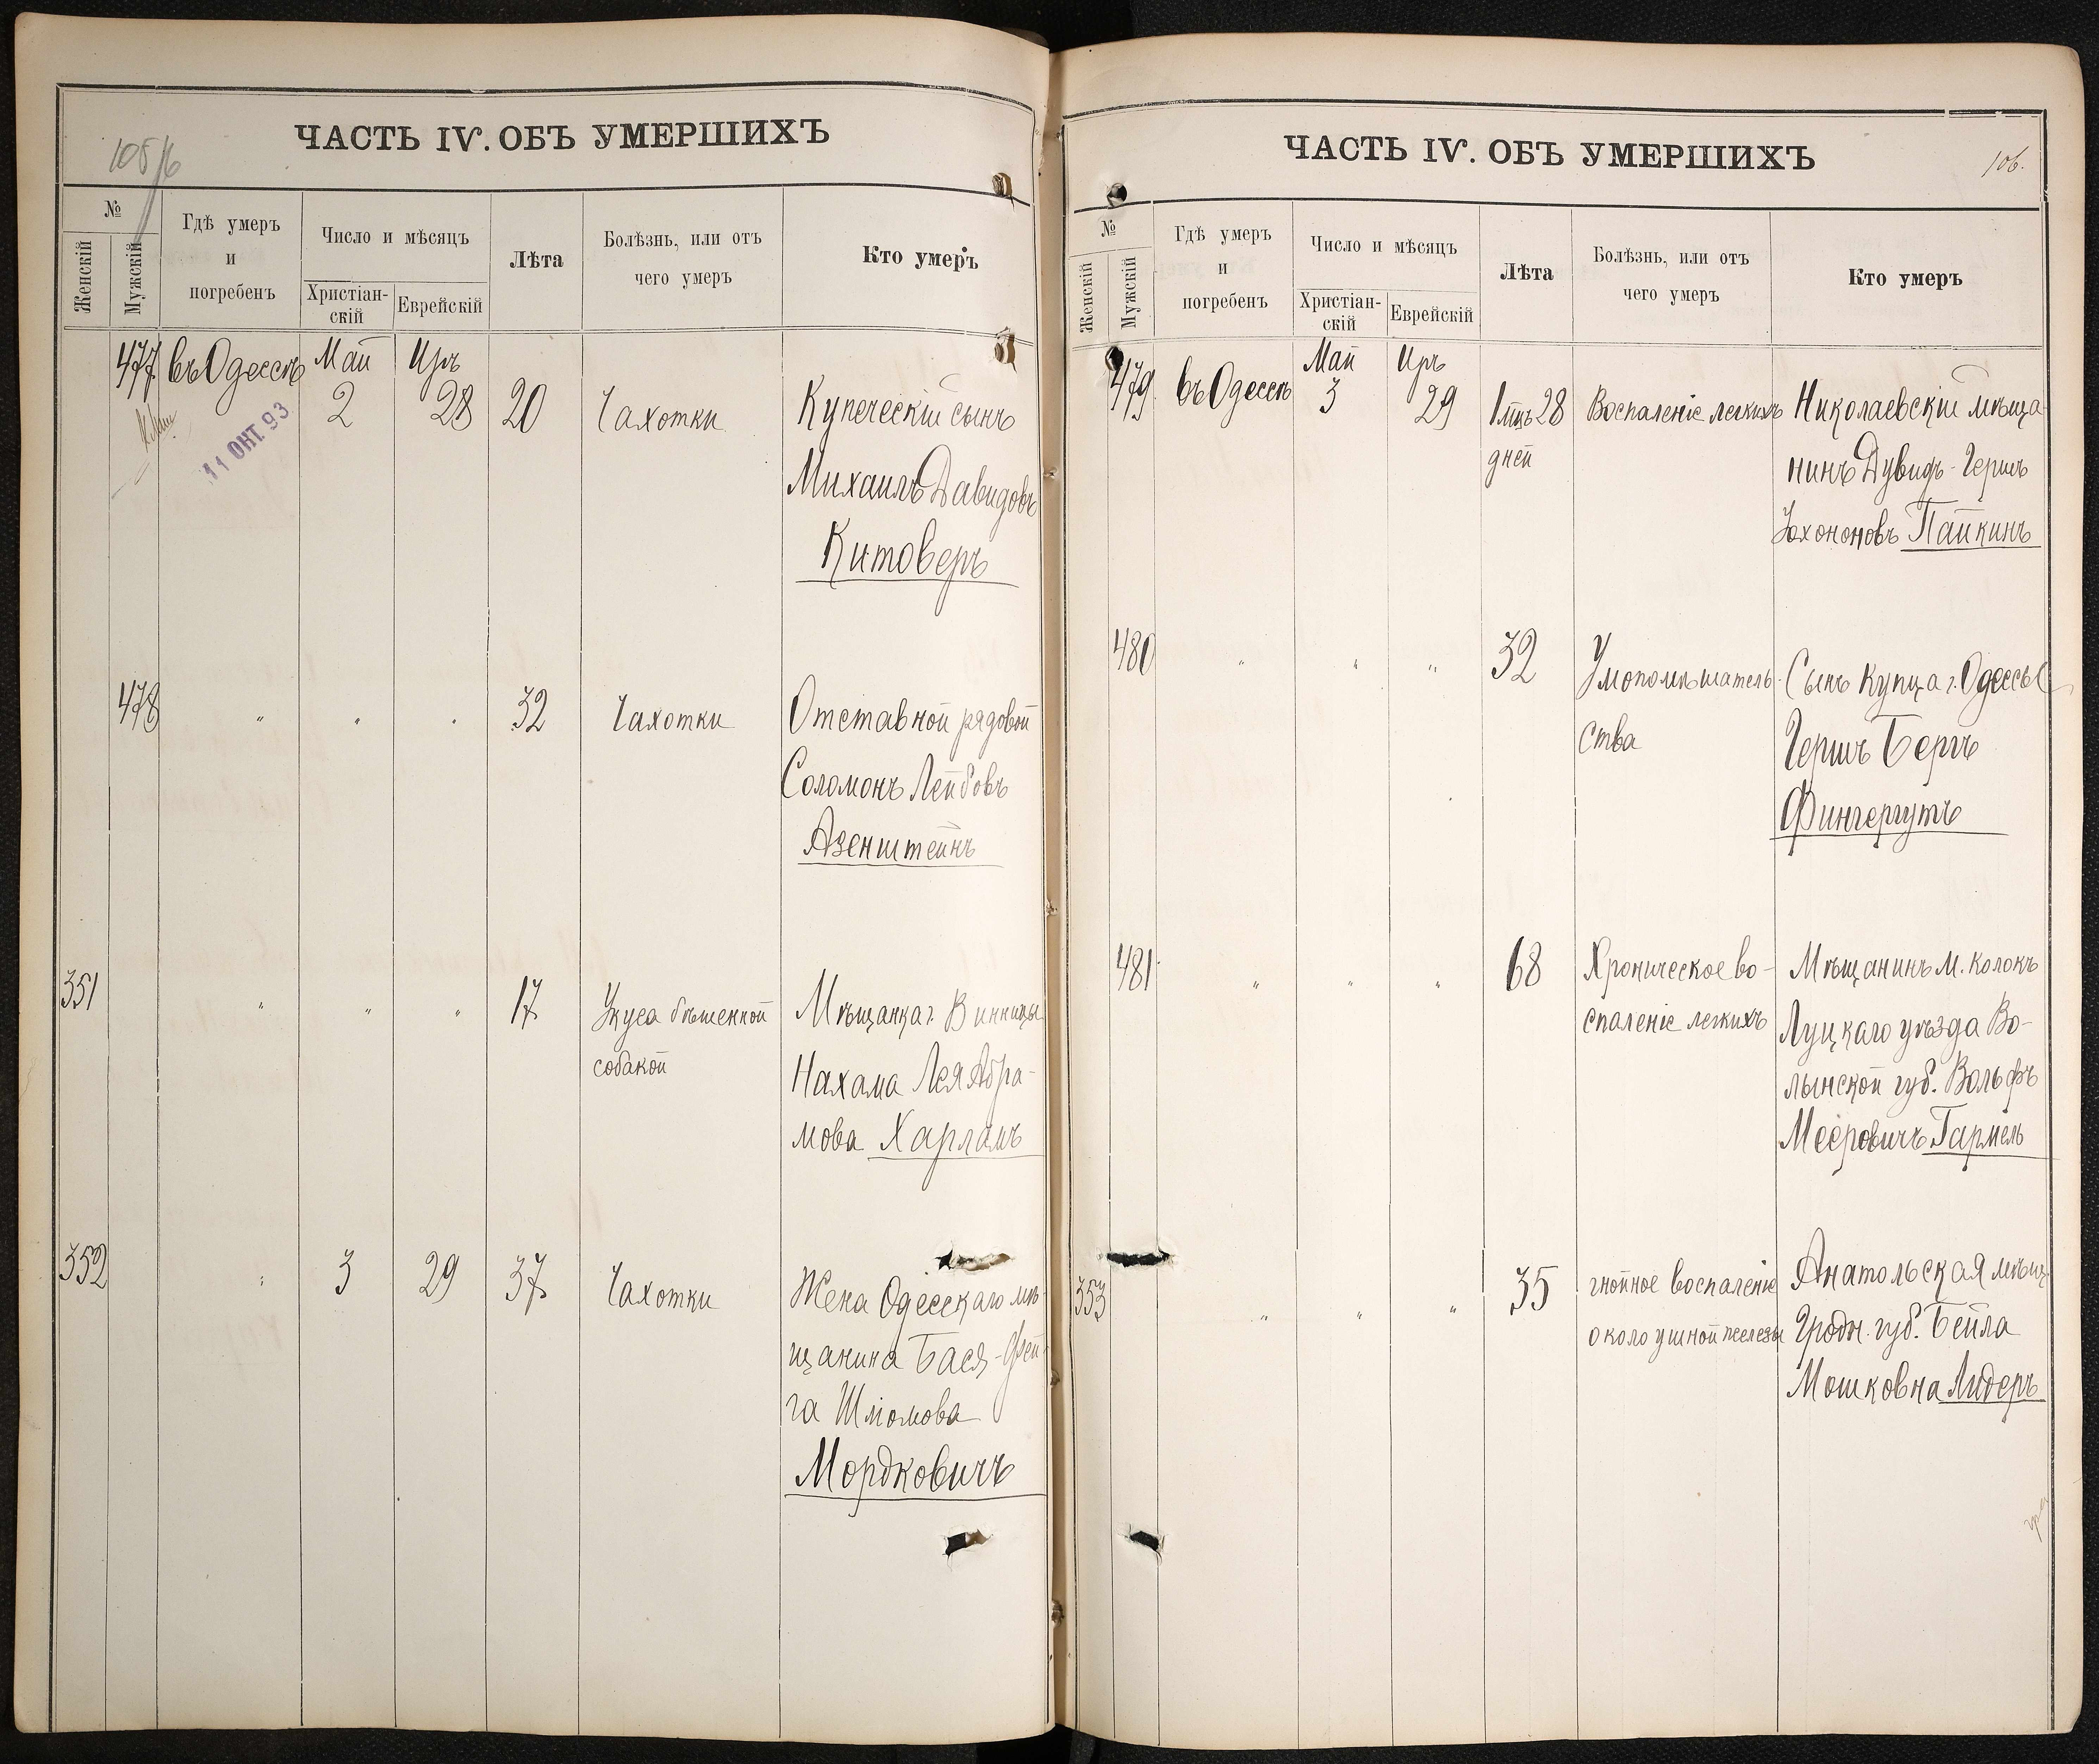 105/6
ЧАСТЬ IV. ОБЪ УМЕРШИХЪ
№
Женскій
Мужскій
Гдѣ умеръ
и
погребенъ
Число и мѣсяцъ
Христіан-
скій
Еврейскій
Лѣта
Болѣзнь, или отъ
чего умеръ
Кто умеръ
477 въ Одессѣ Май Иръ
2 28 20 Чахотки Купеческій сынъ
11 ОКТ. 93
Михаилъ Давидовъ
Китоверъ
478 " " " 32 Чахотки Отставной рядовой
Соломонъ Лейбовъ
Азенштейнъ
351 " " " 17 Укуса бѣшенной Мѣщанка г. Винницы
собакой
Нахама Лея Абра-
мова Харламъ
352 " 3 29 37 Чахотки Жена Одесскаго мѣ-
щанина Бася-Фей-
га Шліомова
Мордковичъ
ЧАСТЬ IV. ОБЪ УМЕРШИХЪ
106.
№
Женскій
Мужскій
Гдѣ умеръ
и
погребенъ
Число и мѣсяцъ
Христіан-
скій
Еврейскій
Лѣта
Болѣзнь, или отъ
чего умеръ
Кто умеръ
479 въ Одессѣ Май Иръ
3 29 1 мцъ 28 Воспаленіе легкихъ Николаевскій мѣща-
дней
нинъ Дувидъ-Гершъ
Іохононовъ Пайкинъ
480 " " " 32 Умопомѣшатель- Сынъ купца г. Одессы
ства
Гершъ Бергъ
Фингергутъ
481 " " " 68 Хроническое во- Мѣщанинъ м. Колокъ
спаленіе легкихъ Луцкаго уѣзда Во-
лынской губ. Вольфъ
Мееровичъ Гармель
353 " " " 35 гнойное воспаленіе Анатольская мѣщ.
околоушной железы Гродн. губ. Бейла
Мошковна Лидеръ